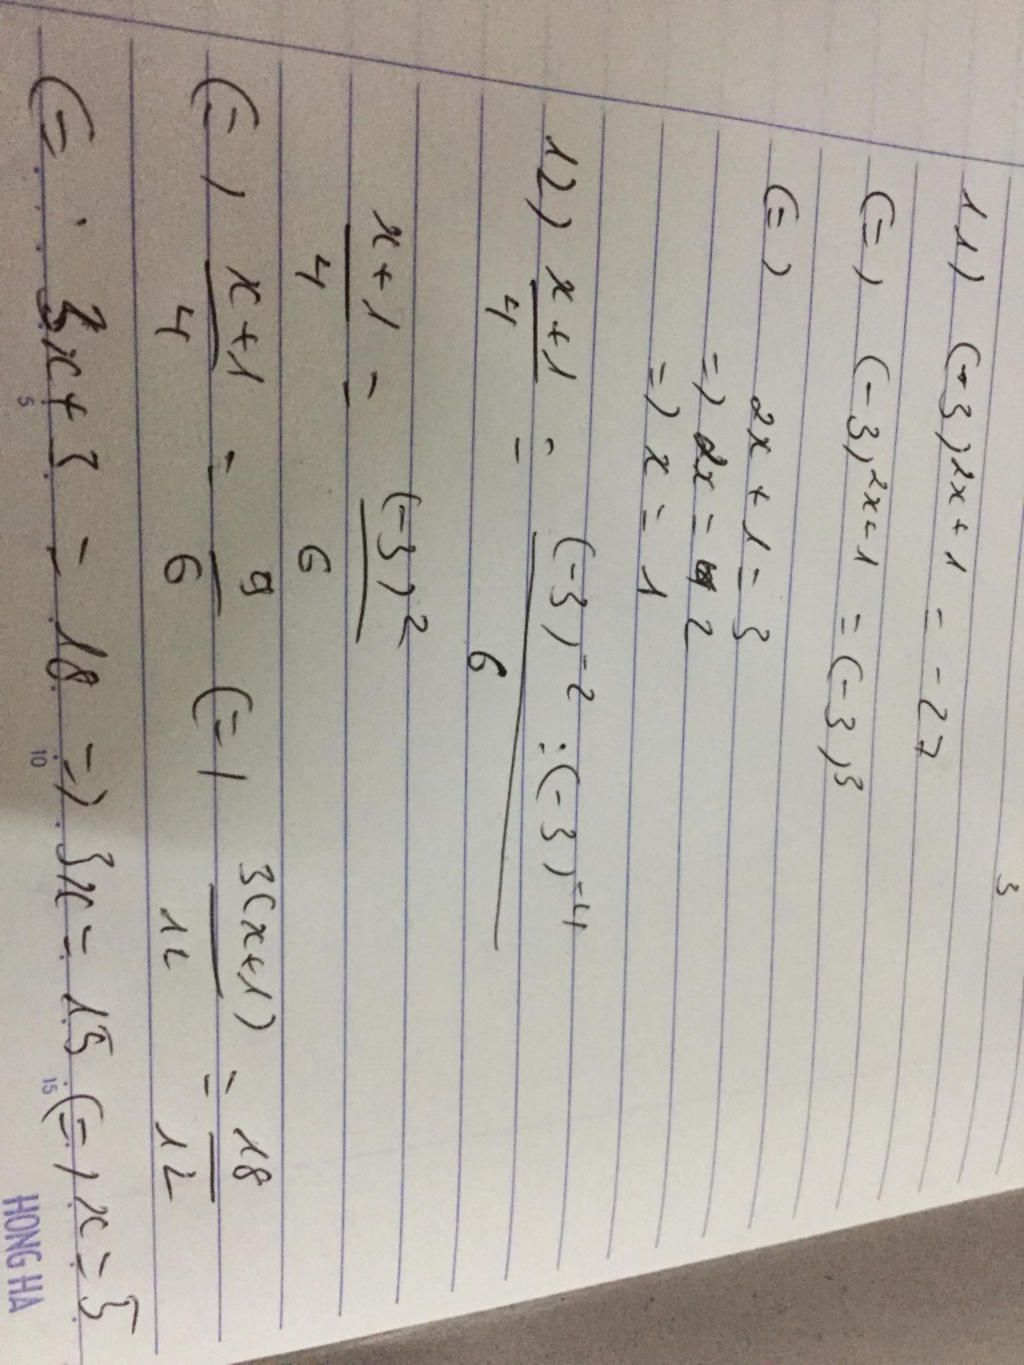 3
11) (-3)^2x+1 = -27
(=) (-3)^2x+1 = (-3)^3
(=) 2x+1 = 3
=) 2x = 2
=) x = 1
12) x+1/4 = (-3)^-2 : (-3)^-4/6
x+1/4 = (-3)^2/6
(=) x+1/4 = 9/6 (=) 3(x+1)/12 = 18/12
(= 3x+3 = 18 =) 3x = 15 (=) x = 5
5 10 15
HONG HA